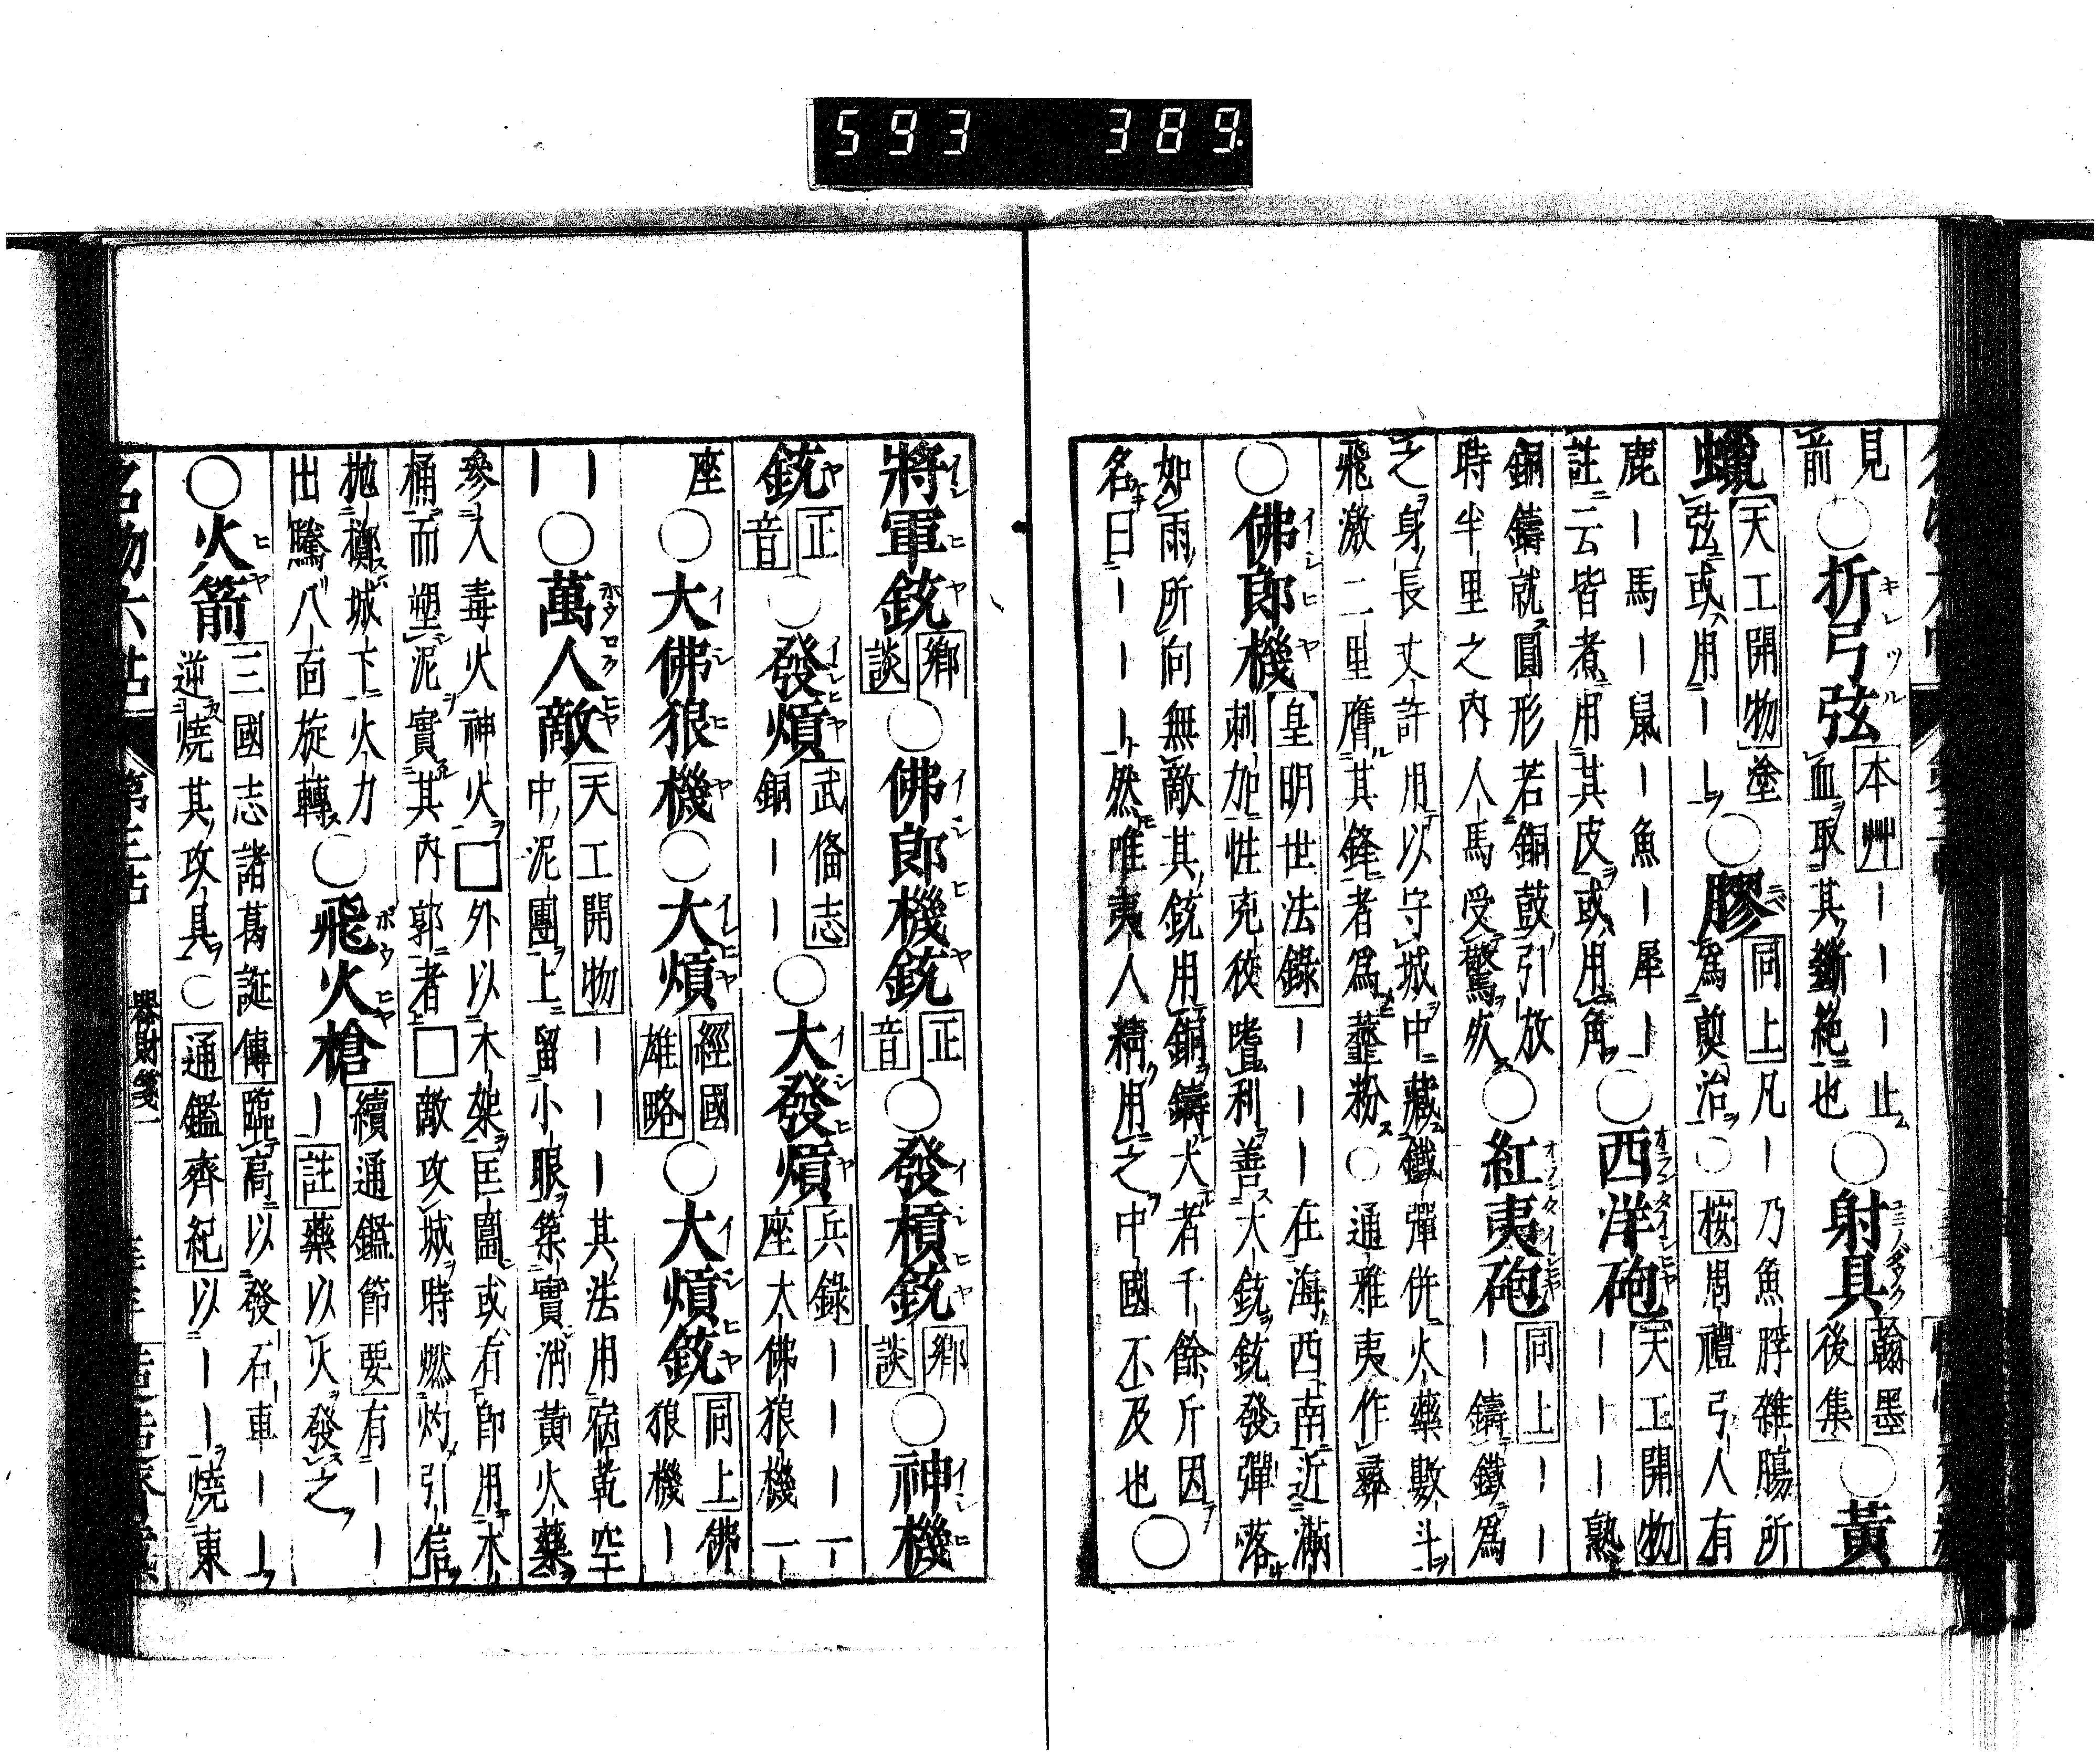 593 389
見
箭○折弓弦本艸｜｜｜止
血取其斷絶也○射具翰墨後集○黃
蠟天工開物塗
弦或用｜｜○膠同上凡｜乃魚脬雜腸所
爲煎治○按周禮弓人有
鹿｜馬｜鼠｜魚｜犀｜
註云皆煮用其皮或用角○西洋砲天工開物
｜｜｜｜熟
銅鑄就圓形若銅鼓引放
時半里之內人馬受驚死○紅夷砲同上｜｜
｜鑄鐵爲
之身長丈許用以守城中藏鐵彈併火藥數斗
飛激二里膺其鋒者爲虀粉○通雅夷作㝷
○佛郎機皇明世法錄｜｜｜在海西南近滿
刺加性兇狡嗜利善大銃銃發彈落
如雨所向無敵其銃用銅鑄大者千餘斤因
名曰｜｜｜｜然唯夷人精用之中國不及也○
將軍銃鄉談○佛郎機銃正音○發槓銃鄉談○神機
銃正音○發熕武俻志
銅｜｜○大發熕兵錄｜｜｜一
座大佛狼機一
座○大佛狼機○大熕經國雄略○大熕銃同上佛
狼機｜
｜
｜○萬人敵天工開物｜｜｜其法用宿乾空
中泥團上留小眼築實消黃火藥
參入毒火神火□外以木架匡圍或有即用木
桶而塑泥實其內郭者□敵攻城時燃灼引信
拋擲城下火力
出騰八面旋轉○飛火槍續通鑑節要有｜｜
｜註藥以火發之
○火箭三國志諸葛誕傳臨高以發石車｜｜
逆燒其攻具○通鑑齊紀以｜｜燒東
器財箋一